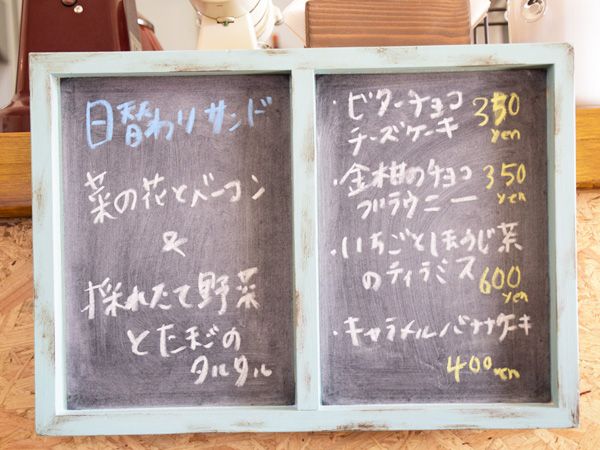 日替わりサンド
菜の花とベーコン
&
採れたて野菜
とたまごの
タルタル
・ビターチョコ 350
チーズケーキ yen
・金柑のチョコ 350
ブラウニー yen
・いちごとほうじ茶
のティラミス 600
yen
・キャラメルバナナケーキ
400 yen